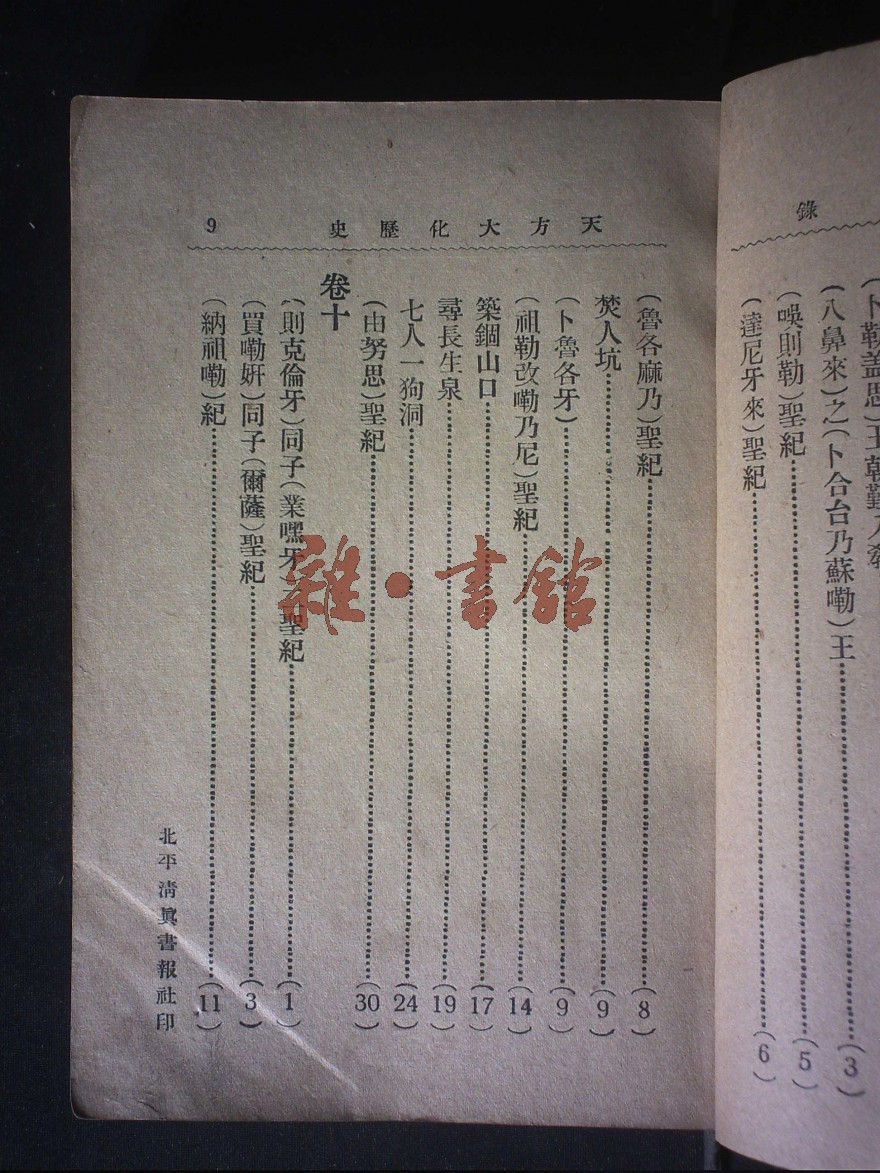 錄
卜勒盖思)王朝觐入
(八鼻來)之(卜合台乃蘇嘞)王(3)
(唉則勒)聖紀(5)
(達尼牙來)聖紀(6)
天方大化歷史 9
(魯各麻乃)聖紀(8)
焚人坑(9)
(卜魯各牙)(9)
(祖勒改嘞乃尼)聖紀(14)
築錮山口(17)
尋長生泉(19)
七人一狗洞(24)
(由努思)聖紀(30)
卷十
(則克倫牙)同子(業嘿牙)聖紀(1)
(買嘞姸)同子(爾薩)聖紀(3)
(納祖嘞)紀(11)
北平清眞書報社印
雜·書館